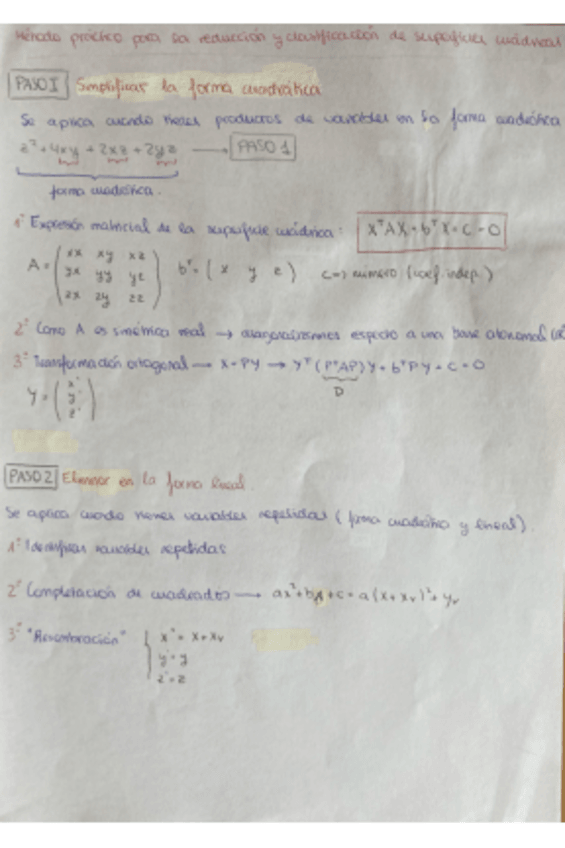 Método práctico para la reducción y clasificación de superficies cuádricas
PASO I Simplificar la forma cuadrática
Se aplica cuando tienes productos de variables en la forma cuadrática
z² + 4xy + 2xz + 2yz → PASO 1
forma cuadrática.
1º Expresión matricial de la superficie cuádrica: XᵀAX + bᵀX + c = 0
A = ( xx xy xz
yx yy yz
zx zy zz ) bᵀ = ( x y z ) c => número (coef. indep.)
2º Como A es simétrica real → diagonalizamos respecto a una base ortonormal
3º Transformación ortogonal → X = PY → Yᵀ(PᵀAP)Y + bᵀPY + c = 0
D
Y = ( x'
y'
z' )
PASO 2 Eliminar en la forma lineal.
Se aplica cuando tienes variables repetidas (forma cuadrática y lineal).
1º Identificas variables repetidas
2º Completación de cuadrados → ax² + bx + c = a(x + xᵥ)² + yᵥ
3º
{ x'' = x + xᵥ
y' = y
z' = z